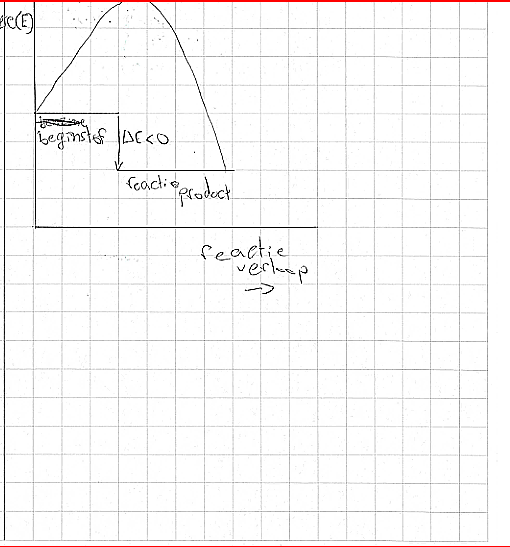 beginstof ΔE<0
reactie
product
reactie
verloop
→